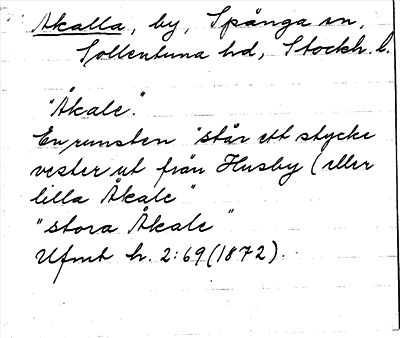 Akalla, by, Spånga sn,
Sollentuna hd, Stockh. l.
"Åkale".
En runsten "står ett stycke
vester ut från Husby (eller
lilla Åkale"
"stora Åkale"
Ufmt h. 2:69 (1872).